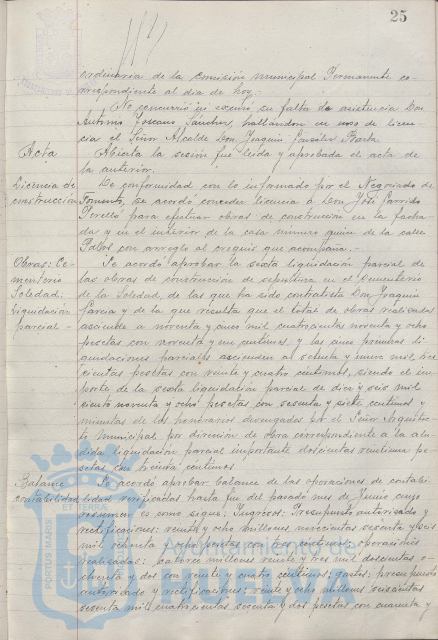 25
ordinaria de la Comisión Municipal Permanente co-
rrespondiente al día de hoy.-
No concurrió ni excusó su falta de asistencia Don
Antonio Toscano Sánchez, hallándose en uso de licen-
cia el Señor Alcalde Don Joaquín González Barba.
Acta
Abierta la sesión fué leída y aprobada el acta de
la anterior.
Licencia de
construcción
De conformidad con lo informado por el Negociado de
Fomento, se acordó conceder licencia a Don José Garrido
Perelló para efectuar obras de construcción en la facha-
da y en el interior de la casa número quince de la calle
Palos con arreglo al croquis que acompaña.-
Obras: Ce-
menterio
Soledad:
Liquidación
parcial.-
Se acordó aprobar la sexta liquidación parcial de
las obras de construcción de sepulturas en el Cementerio
de la Soledad, de las que ha sido contratista Don Joaquín
García y de la que resulta que el total de obras realizadas
asciende a noventa y cinco mil cuatrocientas noventa y ocho
pesetas con noventa y un céntimos y las cinco primeras li-
quidaciones parciales ascienden a setenta y nueve mil tres-
cientas pesetas con veinte y cuatro céntimos, siendo el im-
porte de la sexta liquidación parcial de diez y seis mil
ciento noventa y ocho pesetas con sesenta y siete céntimos y
minutas de los honorarios devengados por el Señor Arquitec-
to Municipal por dirección de obra correspondiente a la alu-
dida liquidación parcial importante doscientas veintiuna pe-
setas con treinta céntimos
Balance
contabilidad
Se acordó aprobar balance de las operaciones de contabi-
lidad verificadas hasta fin del pasado mes de Junio cuyo
resumen es como sigue: Ingresos: Presupuesto autorizado y
rectificaciones: veinte y ocho millones novecientas sesenta y seis
mil ochenta y ocho pesetas con céntimos; operaciones
realizadas: catorce millones veinte y tres mil doscientas o-
chenta y dos con veinte y cuatro céntimos; gastos: presupuesto
autorizado y rectificaciones: veinte y ocho millones seiscientas
sesenta mil cuatrocientas sesenta y dos pesetas con cuarenta y
PORTUS MARIS
ET TERRAE
Ayuntamiento de